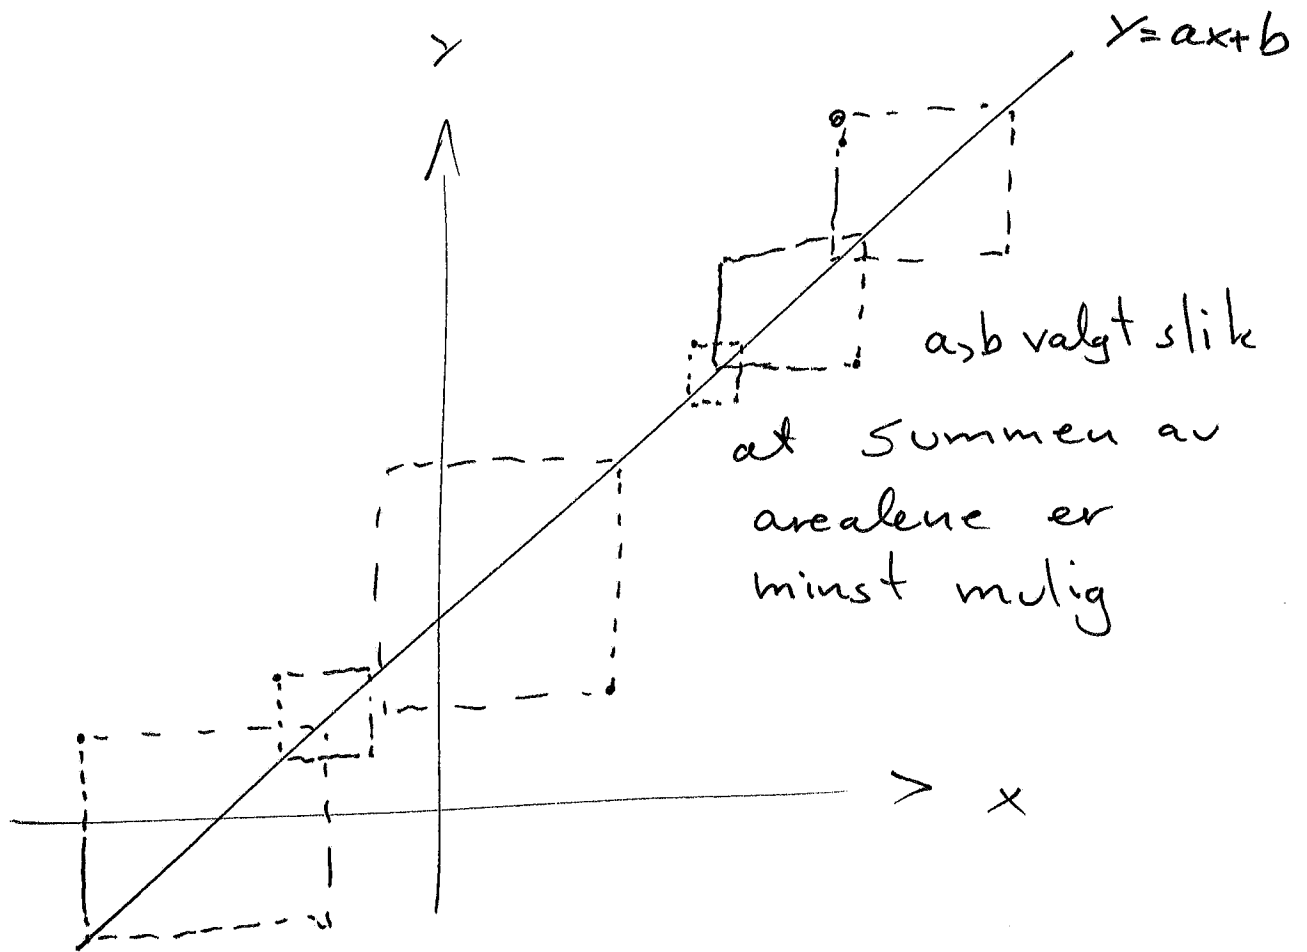 Y
Y=ax+b
a,b valgt slik
at summen av
arealene er
minst mulig
x